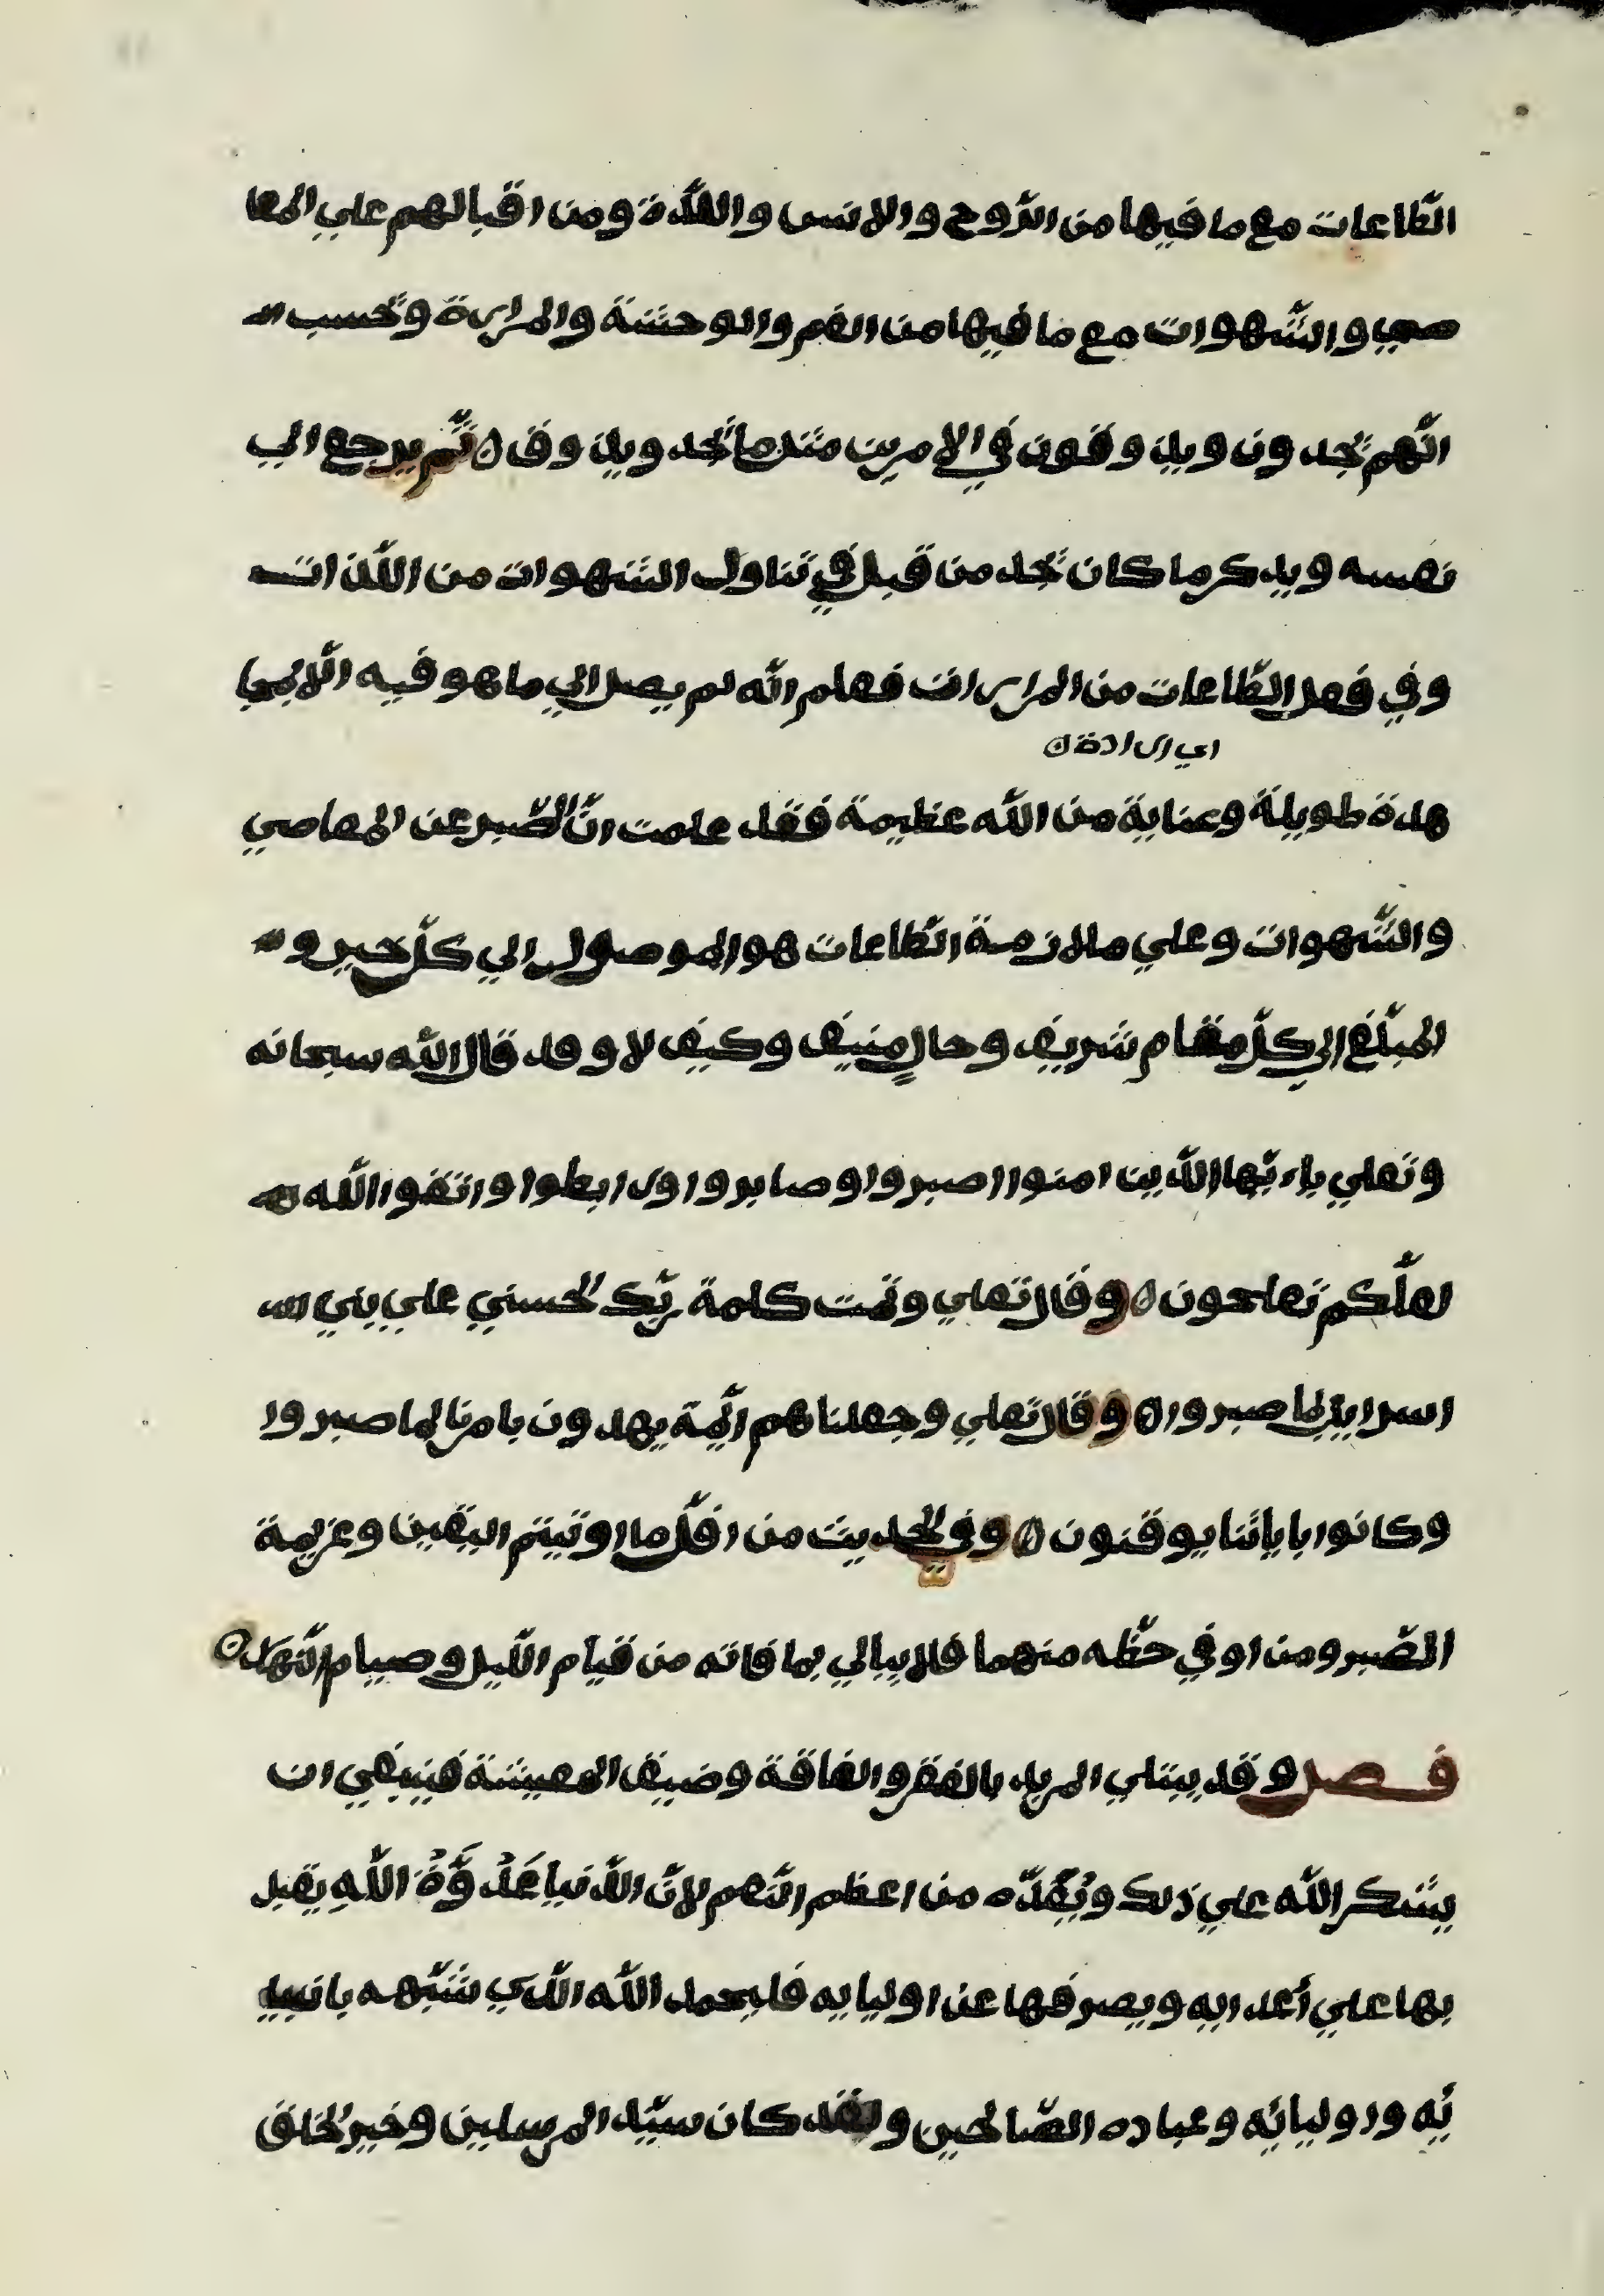 الطّاعات مع ما فيها من الرّوح والانس واللّذة ومن اقبالهم علي المعا
صي والشّهوات مع ما فيها من الغم والوحشة والمرارة وتحسب
انّهم تجدون ويذوقون في الامرين مثل ما تجد ويذوق ثمّ يرجع الي
نفسه ويذكر ما كان تجد من قبل في تناول الشهوات من اللّذات
وفي فعل الطّاعات من المرارات فعلم انّه لم يصل الي ما هو فيه الّا بمجا
اي ارادة
هدة طويلة وعناية من اللّه عظيمة فقد علمت انّ الصّبر عن المعاصي
والشّهوات وعلي ملازمة الطّاعات هو الموصول الي كلّ خير و
المبلّغ الي كلّ مقام شريف وحالٍ منيف وكيف لا وقد قال اللّه سبحانه
وتعلي ياءيّها الّذين امنوا اصبروا وصابروا ورابطوا واتقوا اللّه
لعلّكم تفلحون وقال تعلي وتمّت كلمة ربّك الحسني علي بني
اسرايل لما صبروا وقال تعلي وجعلناهم ائمّة يهدون بامرنا لما صبروا
وكانوا باياتنا يوقنون وفي الحديث من اقلّ ما اوتيتم اليقين وعزيمة
الصّبر ومن اوفي حظّه منهما فلا يبالي بما فاته من قيام اللّيل وصيام النّهار
فصل وقد يبتلي المريد بالفقر والفاقة وضيق المعيشة فينبغي ان
يشكر اللّه علي ذلك ويعدّه من اعظم النّعم لانّ الدّنيا عَدُوَّةُ اللّهِ يقبل
بها علي أعدايه ويصرفها عن اوليايه فليحمد اللّه الّذي شبّهه بانبيا
ئه واوليائه وعباده الصّالحين ولقد كان سيّد المرسلين وخير الخلق